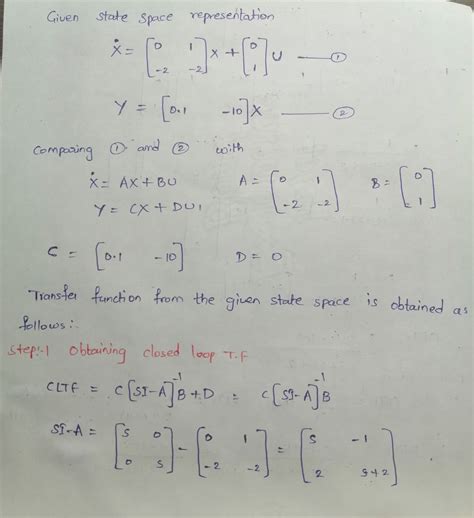 Given State Space representation
Ẋ = [0 1; -2 -2] X + [0; 1] U —— ①
Y = [0.1 -10] X —— ②
Comparing ① and ② with
Ẋ = AX + BU A = [0 1; -2 -2] B = [0; 1]
Y = CX + DU,
C = [0.1 -10] D = 0
Transfer function from the given state space is obtained as
follows:.
Step:-1 Obtaining closed loop T.F
CLTF = C[SI-A]⁻¹B + D = C[SI-A]⁻¹B
SI-A = [S 0; 0 S] - [0 1; -2 -2] = [S -1; 2 S+2]